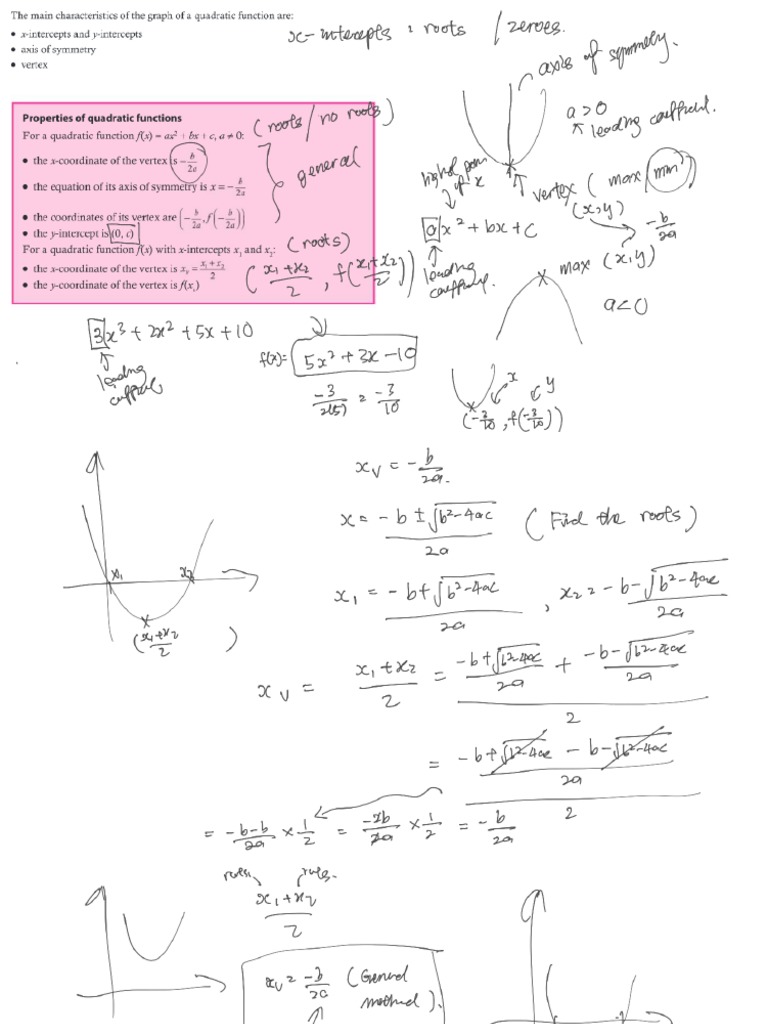 The main characteristics of the graph of a quadratic function are:
• x-intercepts and y-intercepts
• axis of symmetry
• vertex
x-intercepts : roots / zeroes.
axis of symmetry.
a>0
leading coefficient.
Properties of quadratic functions
For a quadratic function f(x) = ax² + bx + c, a ≠ 0:
(roots/no roots)
• the x-coordinate of the vertex is -b/2a
• the equation of its axis of symmetry is x = -b/2a
• the coordinates of its vertex are (-b/2a, f(-b/2a))
• the y-intercept is (0, c)
general
For a quadratic function f(x) with x-intercepts x₁ and x₂:
(roots)
• the x-coordinate of the vertex is xᵥ = (x₁+x₂)/2
• the y-coordinate of the vertex is f(xᵥ)
((x₁+x₂)/2, f((x₁+x₂)/2))
of x
vertex (max/min)
(x,y)
-b/2a
a x² + bx + c
leading
max (x,y)
a<0
3x³ + 2x² + 5x + 10
leading
f(x)= 5x² + 3x - 10
-3/2(5) = -3/10
x y
(-3/10, f(-3/10))
xᵥ = -b/2a.
x = (-b ± √(b²-4ac))/2a (Find the roots)
x₁ = (-b+√(b²-4ac))/2a , x₂ = (-b-√(b²-4ac))/2a
x₁ x₂
((x₁+x₂)/2 )
xᵥ = (x₁+x₂)/2 = ((-b+√(b²-4ac))/2a + (-b-√(b²-4ac))/2a)/2
= ((-b+√(b²-4ac) - b-√(b²-4ac))/2a)/2
= (-b-b)/2a × 1/2 = -2b/2a × 1/2 = -b/2a
roots. roots.
(x₁+x₂)/2
xᵥ = -b/2a (General
method).